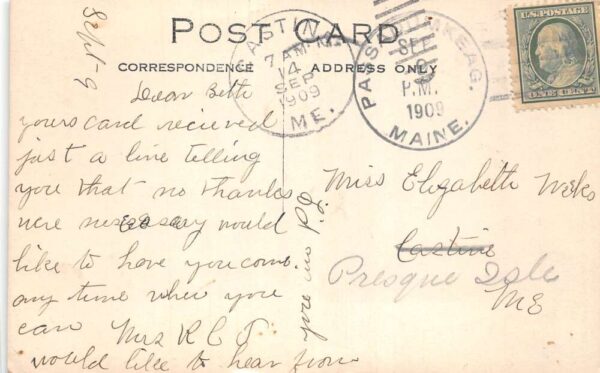 POST CARD
CORRESPONDENCE
ADDRESS ONLY
CASTINE
7 AM
14
SEP
1909
ME.
PASSADUMKEAG.
SEP
P.M.
1909
MAINE.
U.S. POSTAGE
ONE CENT
Sept 9
Dear Beth
yours card recieved
just a line telling
you that no thanks
were nessesary would
like to have you come
any time when you
can Mrs R C J
would like to hear from
you
Miss Elizabeth Weks
Castine
Presque Isle
ME